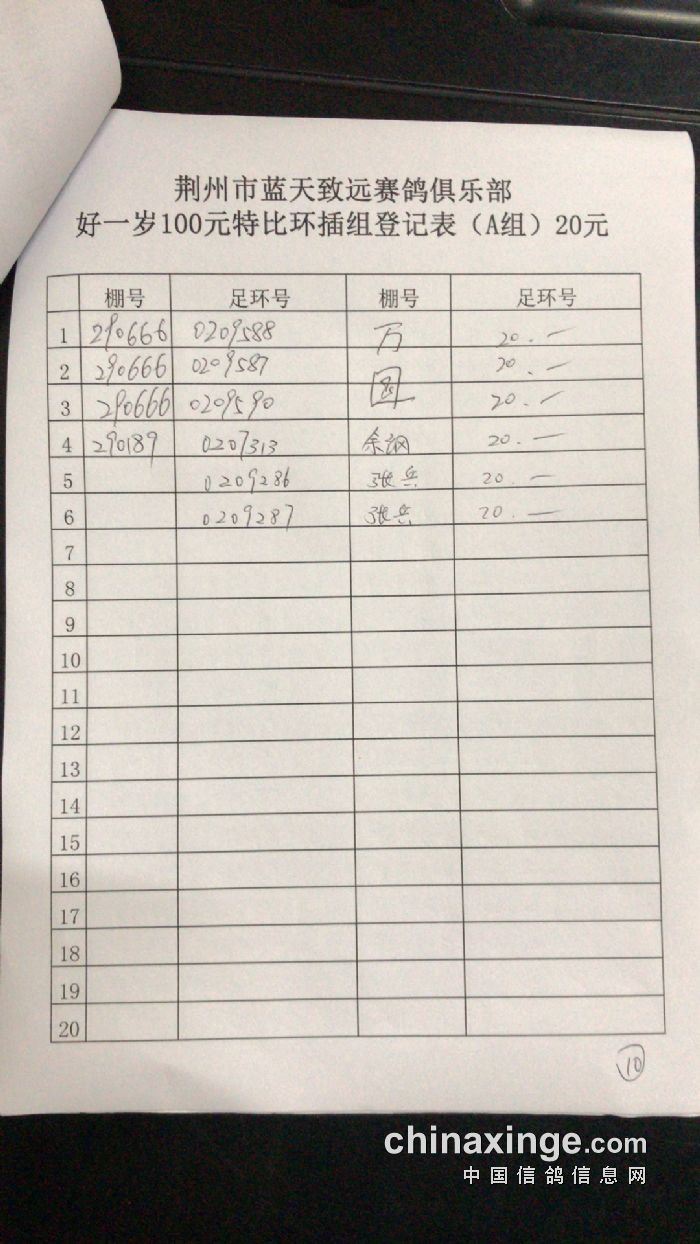 荆州市蓝天致远赛鸽俱乐部
好一岁100元特比环插组登记表（A组）20元
棚号 足环号 棚号 足环号
1 290666 0209588 万 20.—
2 290666 0209587 20.—
3 290666 0209590 20.—
4 290189 0207313 余钢 20.—
5 0209286 张兵 20.—
6 0209287 张兵 20.—
7
8
9
10
11
12
13
14
15
16
17
18
19
20
10
chinaxinge.com
中国信鸽信息网